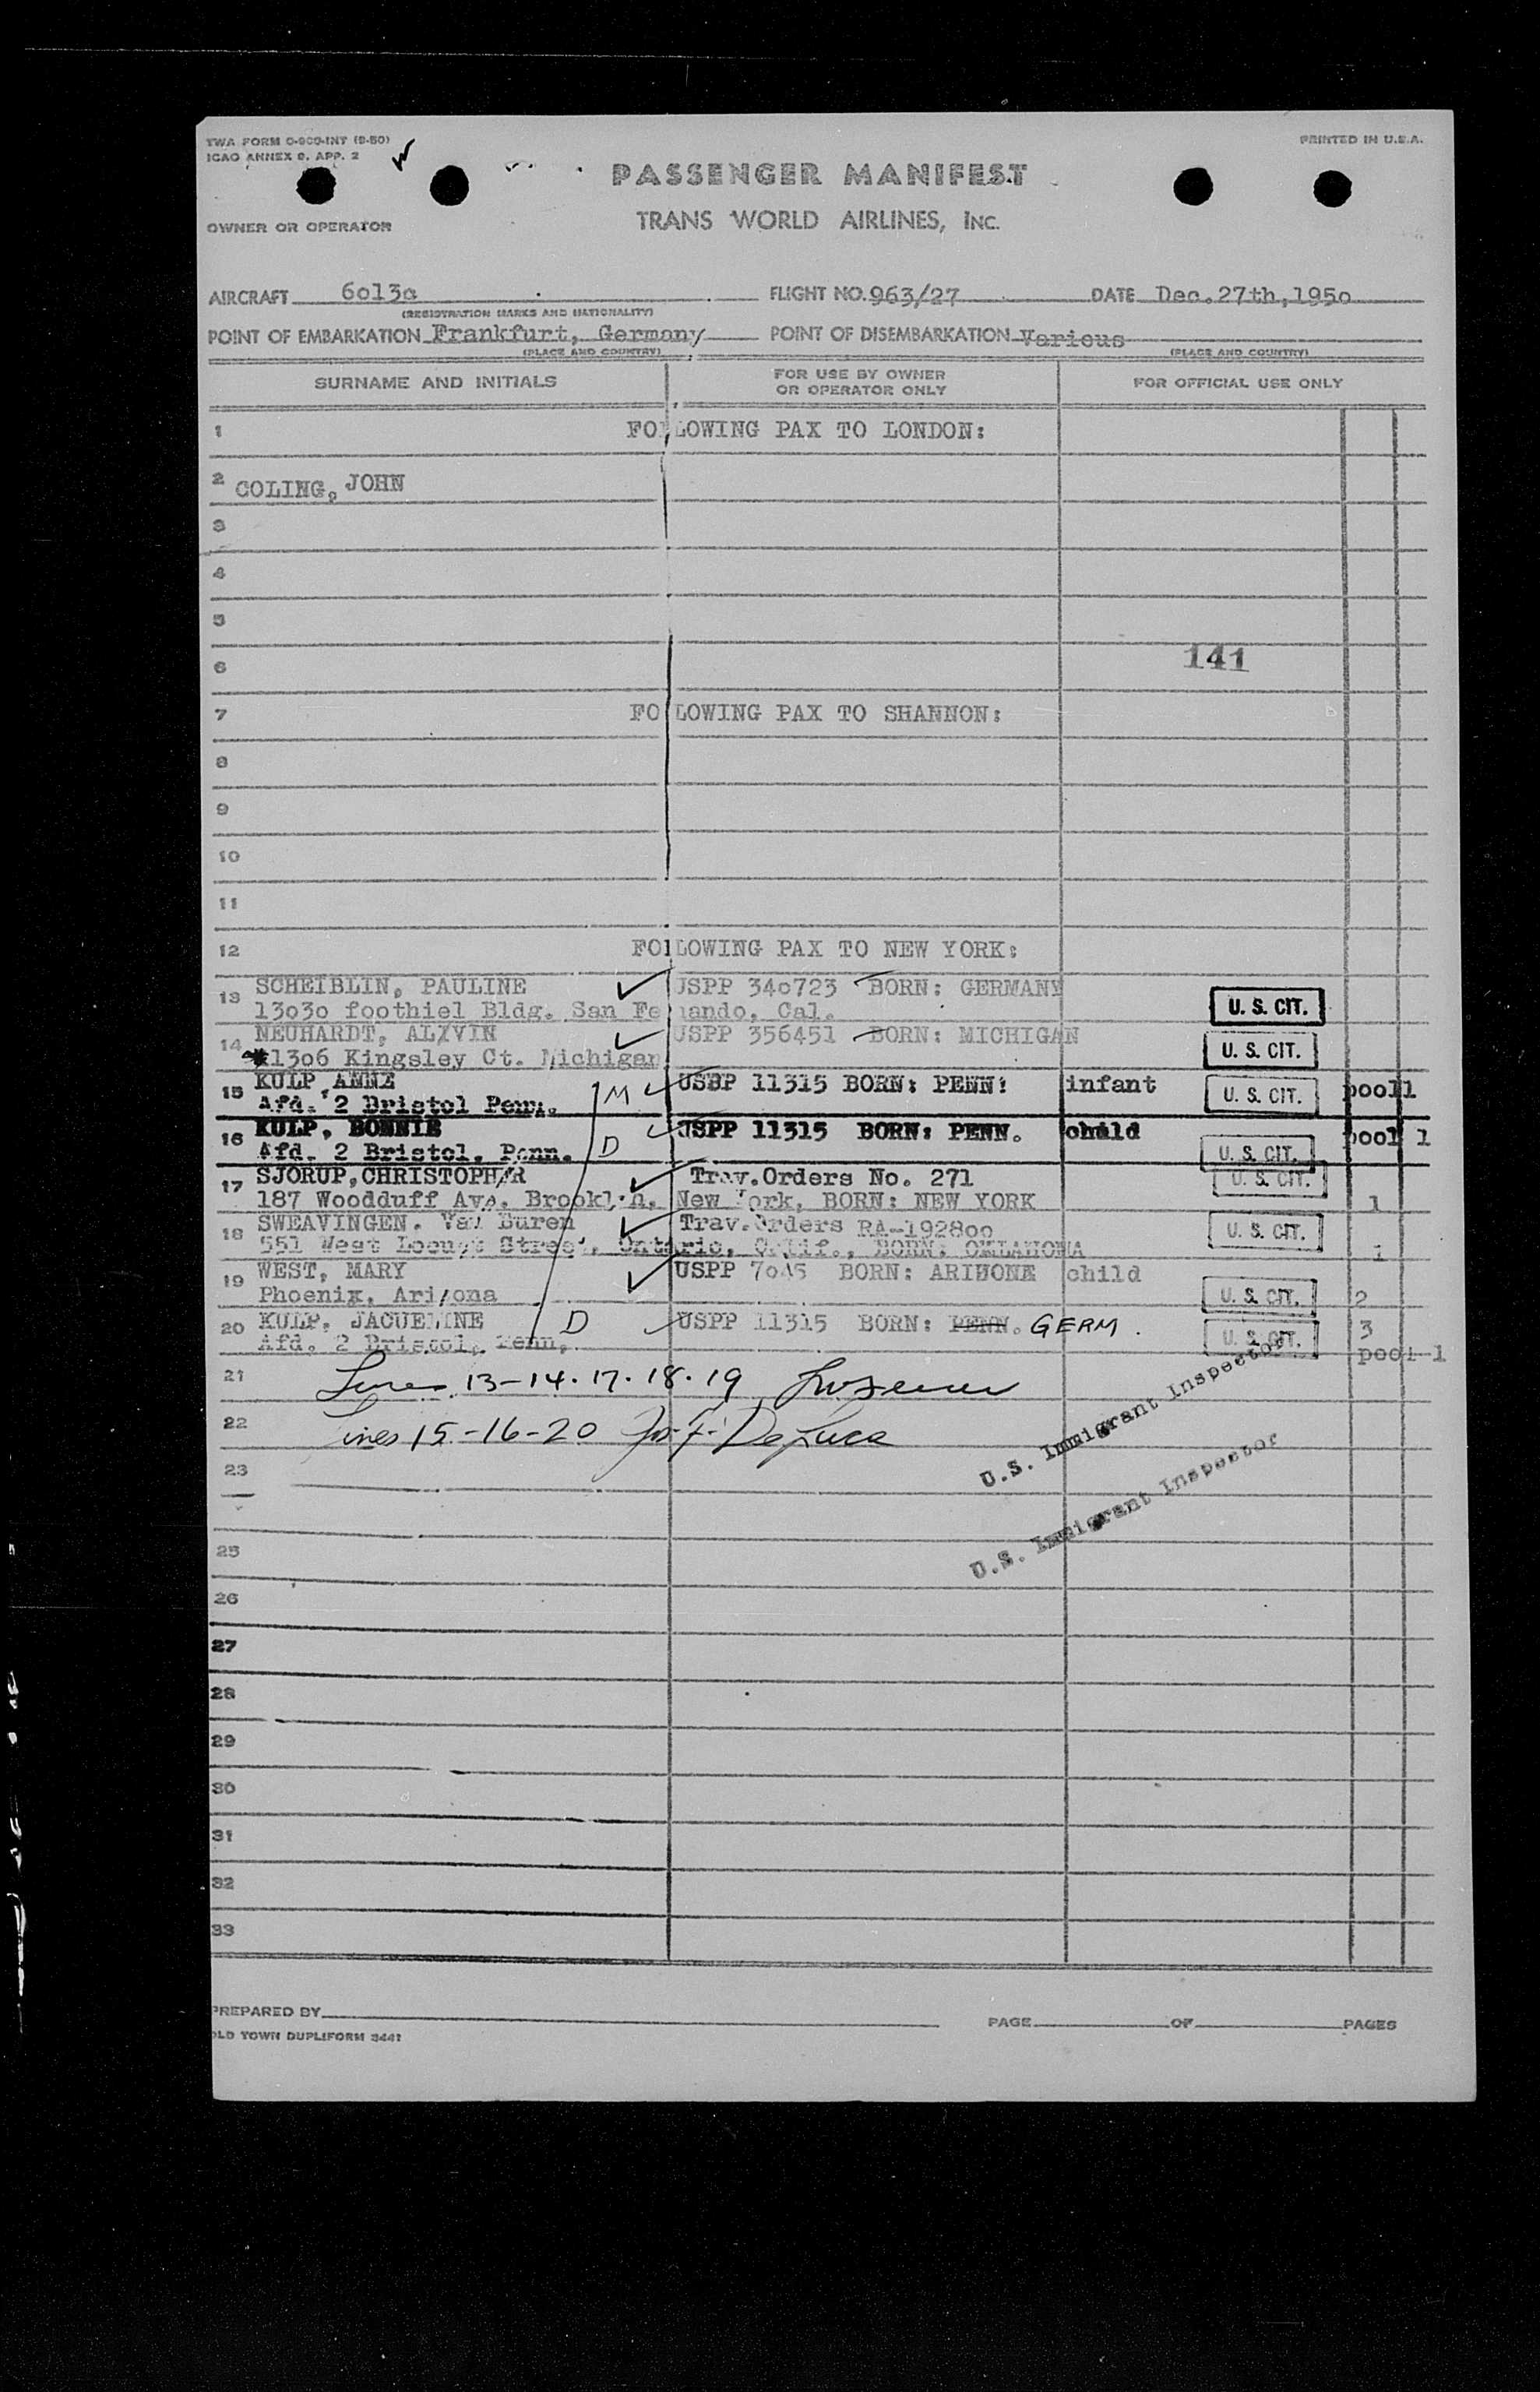 TWA FORM O-900-INT (9-50)
ICAO ANNEX 9, APP. 2
PRINTED IN U.S.A.
PASSENGER MANIFEST
OWNER OR OPERATOR
TRANS WORLD AIRLINES, INC.
AIRCRAFT 6o13o FLIGHT NO. 963/27 DATE Dec.27th,195o
(REGISTRATION MARKS AND NATIONALITY)
POINT OF EMBARKATION Frankfurt, Germany POINT OF DISEMBARKATION Various
(PLACE AND COUNTRY) (PLACE AND COUNTRY)
SURNAME AND INITIALS FOR USE BY OWNER OR OPERATOR ONLY FOR OFFICIAL USE ONLY
1 FOLLOWING PAX TO LONDON:
2 COLING, JOHN
3
4
5
6 141
7 FOLLOWING PAX TO SHANNON:
8
9
10
11
12 FOLLOWING PAX TO NEW YORK:
13 SCHEIBLIN, PAULINE USPP 34o723 BORN: GERMANY
13o3o foothiel Bldg. San Fernando, Cal. U. S. CIT.
14 NEUHARDT, ALXVIN USPP 356451 BORN: MICHIGAN
13o6 Kingsley Ct. Michigan U. S. CIT.
15 KULP ANNE M USPP 11315 BORN: PENN! infant U. S. CIT. pool1
Afd. 2 Bristol Penn.
16 KULP, BONNIE D USPP 11315 BORN: PENN. child pool 1
Afd. 2 Bristol, Penn. U. S. CIT.
17 SJORUP,CHRISTOPHER Trav.Orders No. 271 U. S. CIT.
187 Woodduff Ave. Brooklyn, New York, BORN: NEW YORK 1
18 SWEAVINGEN. Van Buren Trav.Orders RA-1928oo U. S. CIT.
551 West Locust Street, Ontario, Calif., BORN: OKLAHOMA 1
19 WEST, MARY USPP 7o45 BORN: ARIZONE child
Phoenix, Arizona U. S. CIT. 2
20 KULP, JAQUELINE D USPP 11315 BORN: PENN. GERM. U. S. CIT. 3
Afd. 2 Bristol, Penn, pool 1
21 Lines 13-14-17-18-19
U.S. Immigrant Inspector
22 Lines 15-16-20 Jos. F. De Luca
U.S. Immigrant Inspector
23
25
26
27
28
29
30
31
32
33
PREPARED BY PAGE OF PAGES
OLD TOWN DUPLIFORM 3441